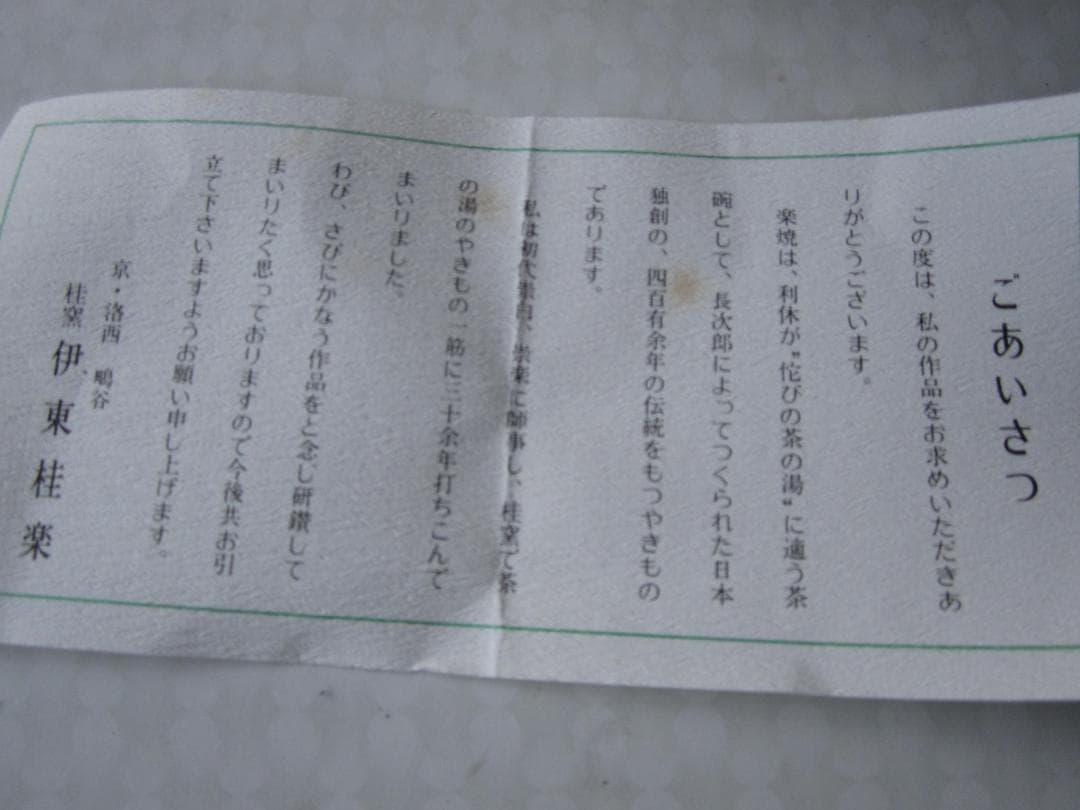 ごあいさつ
この度は、私の作品をお求めいただきあ
りがとうございます。
楽焼は、利休が〝侘びの茶の湯〟に適う茶
碗として、長次郎によってつくられた日本
独創の、四百有余年の伝統をもつやきもの
であります。
私は初代崇白、崇楽に師事し、桂窯で茶
の湯のやきもの一筋に三十余年打ちこんで
まいりました。
わび、さびにかなう作品をと念じ研鑽して
まいりたく思っておりますので今後共お引
立て下さいますようお願い申し上げます。
京・洛西
桂窯 伊東桂楽